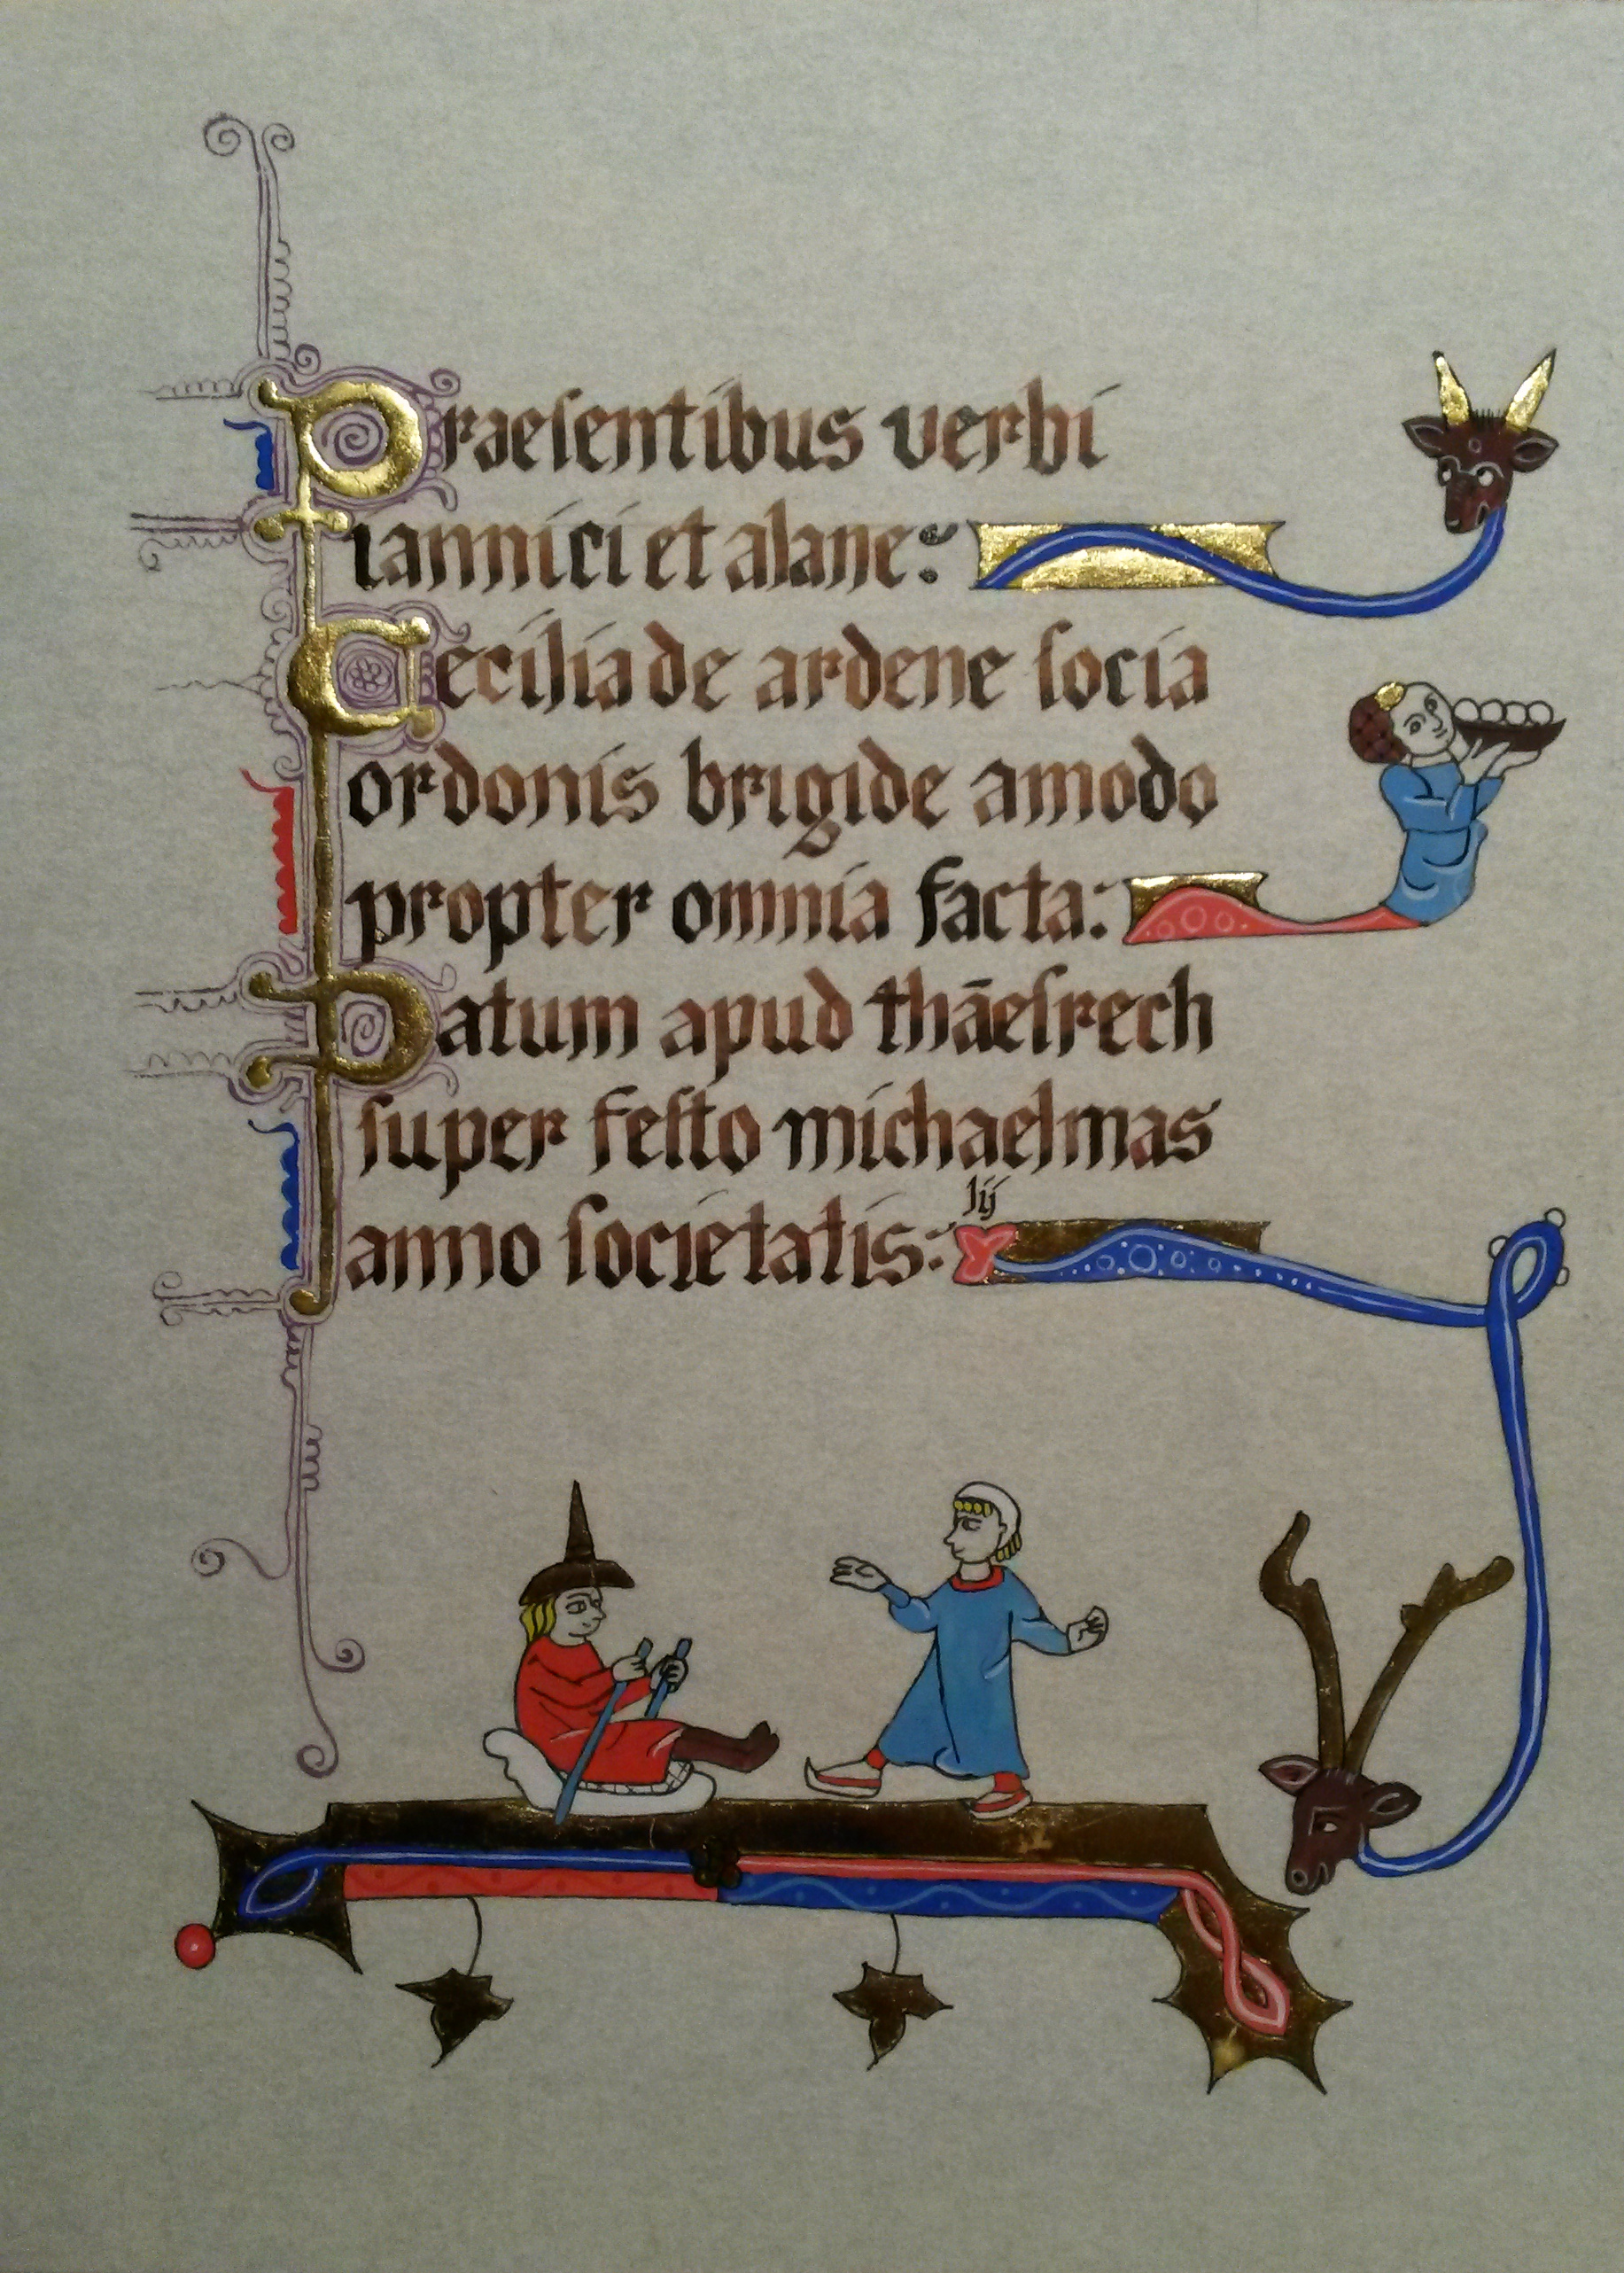 Praesentibus verbi
iannici et alane:
Cecilia de ardene socia
ordonis brigide amodo
propter omnia facta:
Datum apud thāesrech
super festo michaelmas
lij
anno societatis: